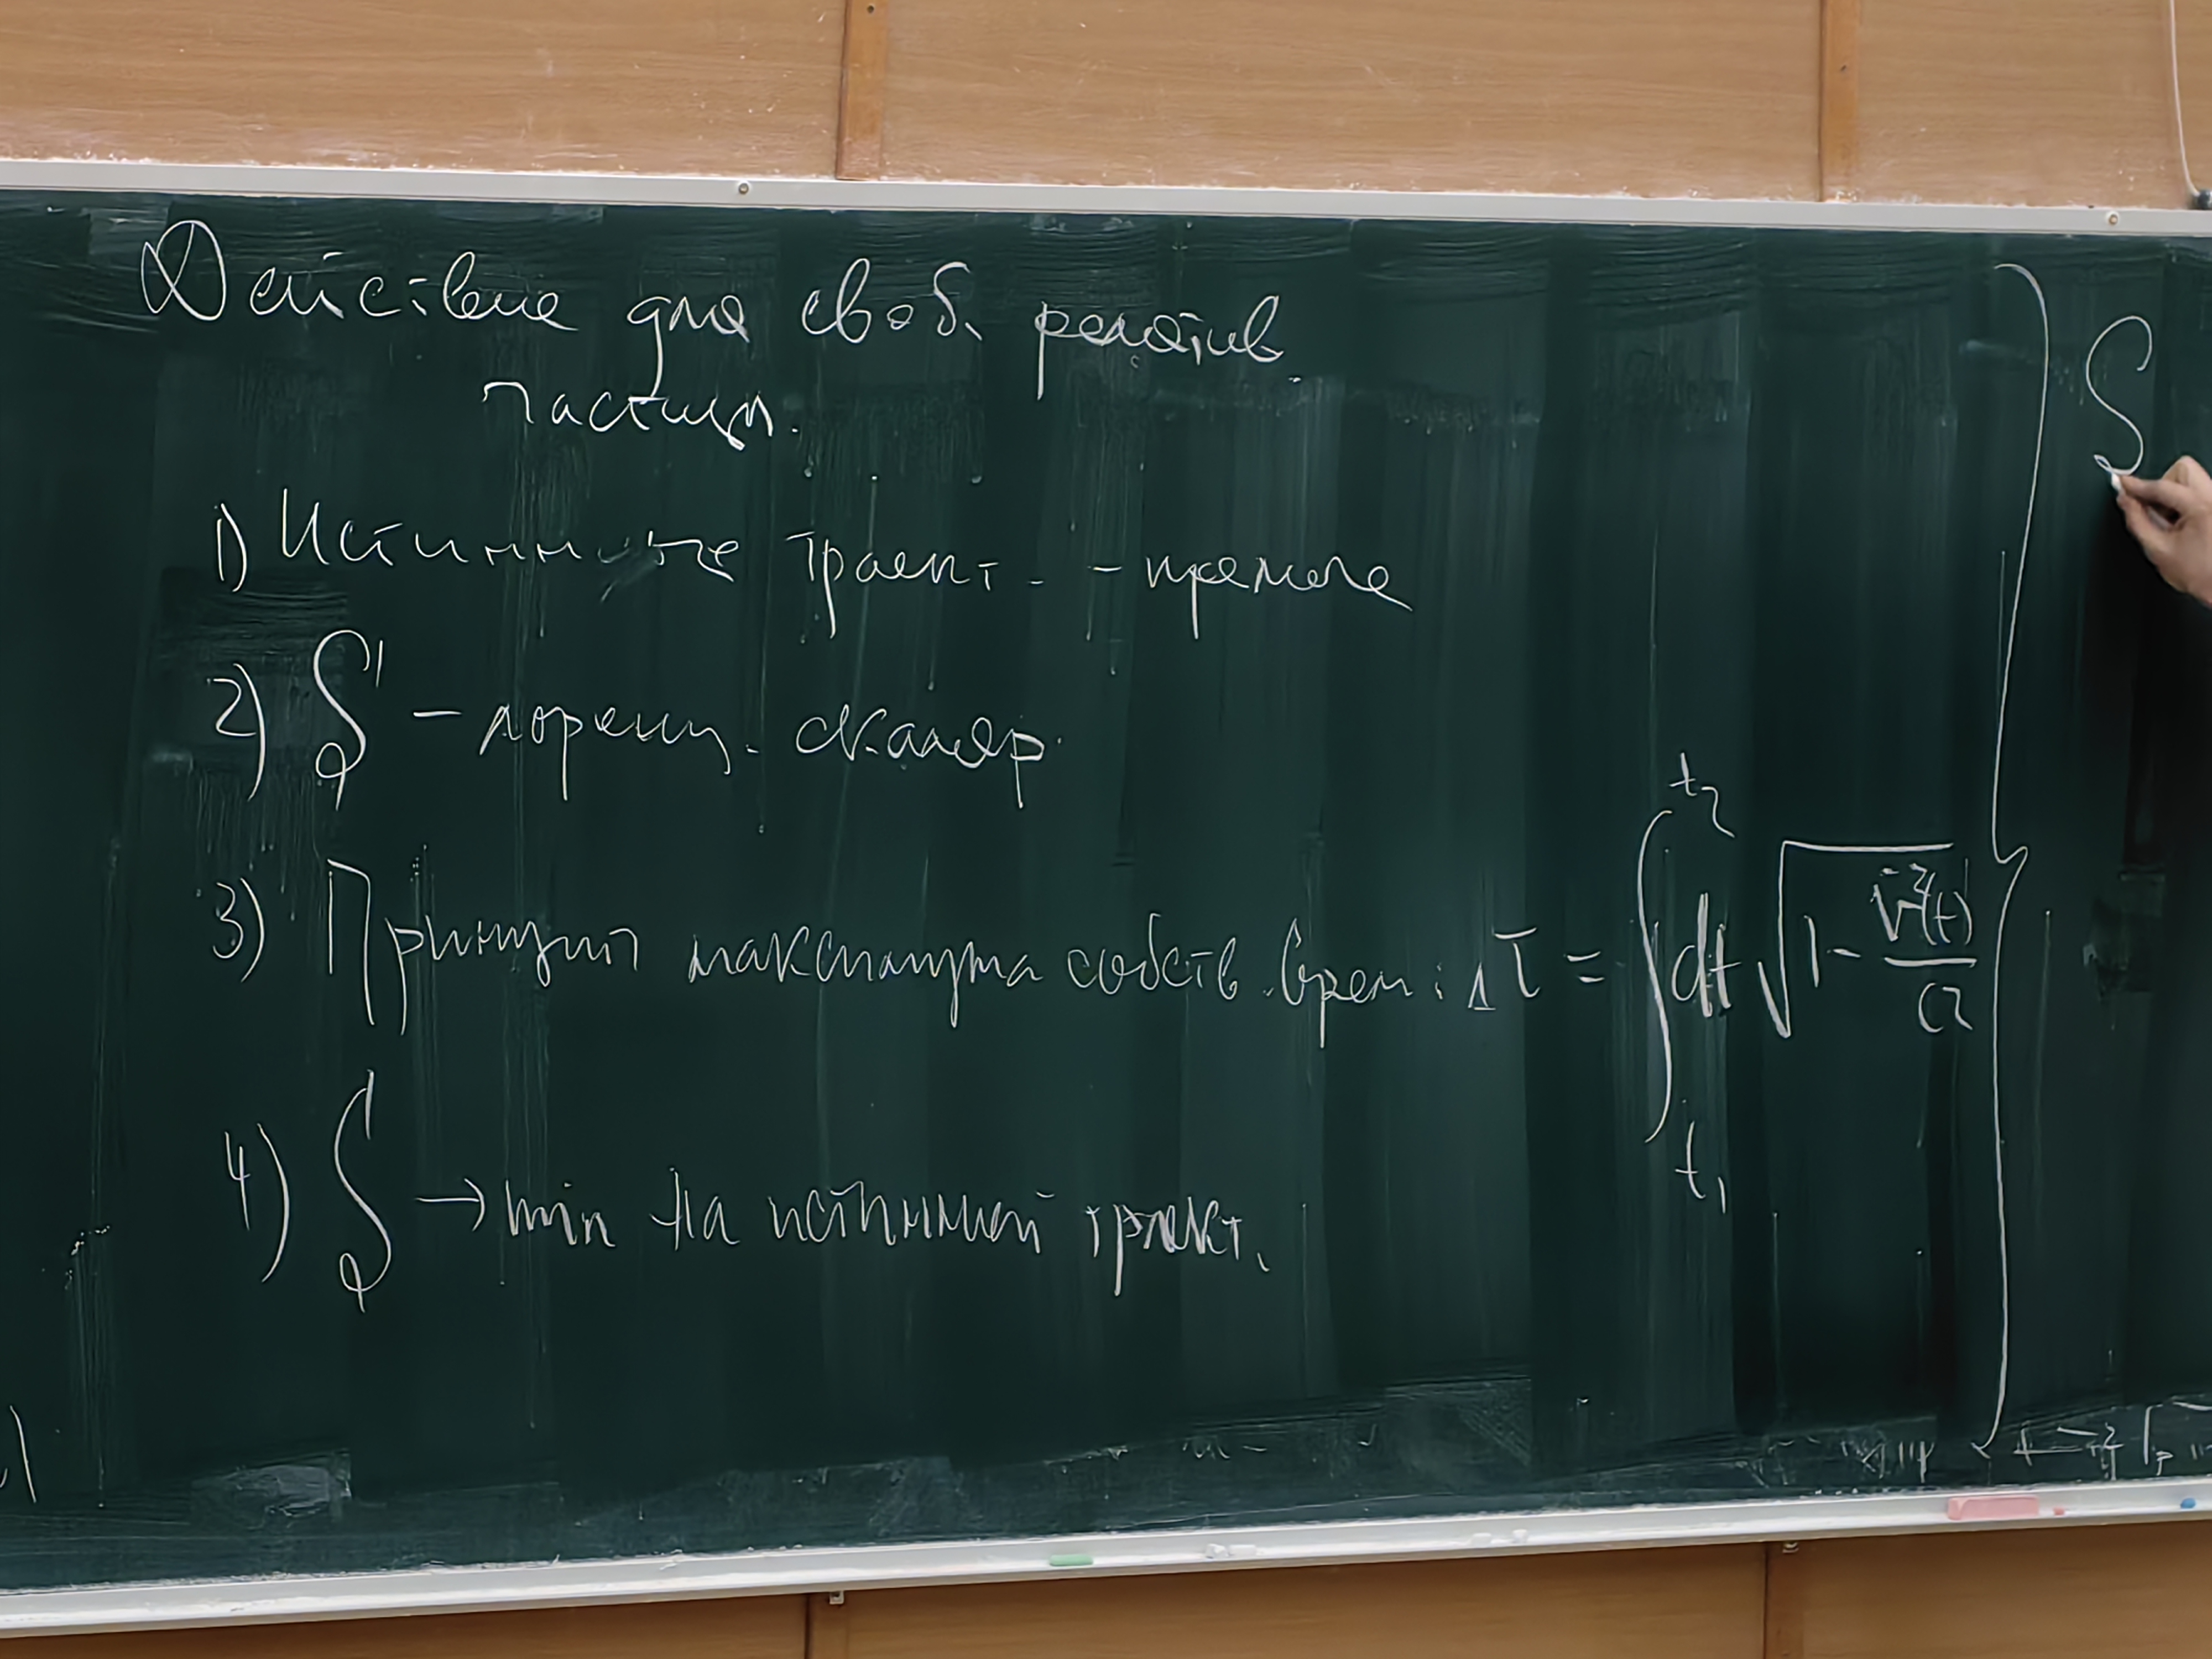 Действие для своб. релятив.
частицы.
1) Истинные траект. - прямые
2) S - лоренц. скаляр.
3) Принцип максимума собств. врем: Δτ = ∫_{t₁}^{t₂} dt √(1 - v⃗²(t)/c²)
4) S → min на истинной траект.
S